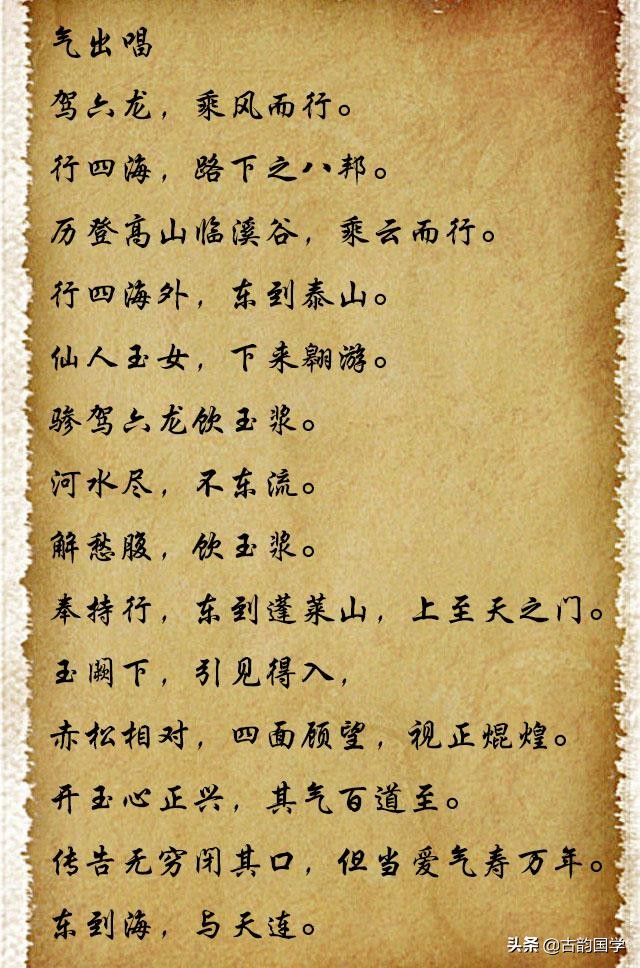 气出唱
驾六龙，乘风而行。
行四海，路下之八邦。
历登高山临溪谷，乘云而行。
行四海外，东到泰山。
仙人玉女，下来翱游。
骖驾六龙饮玉浆。
河水尽，不东流。
解愁腹，饮玉浆。
奉持行，东到蓬莱山，上至天之门。
玉阙下，引见得入，
赤松相对，四面顾望，视正焜煌。
开玉心正兴，其气百道至。
传告无穷闭其口，但当爱气寿万年。
东到海，与天连。
头条 @古韵国学